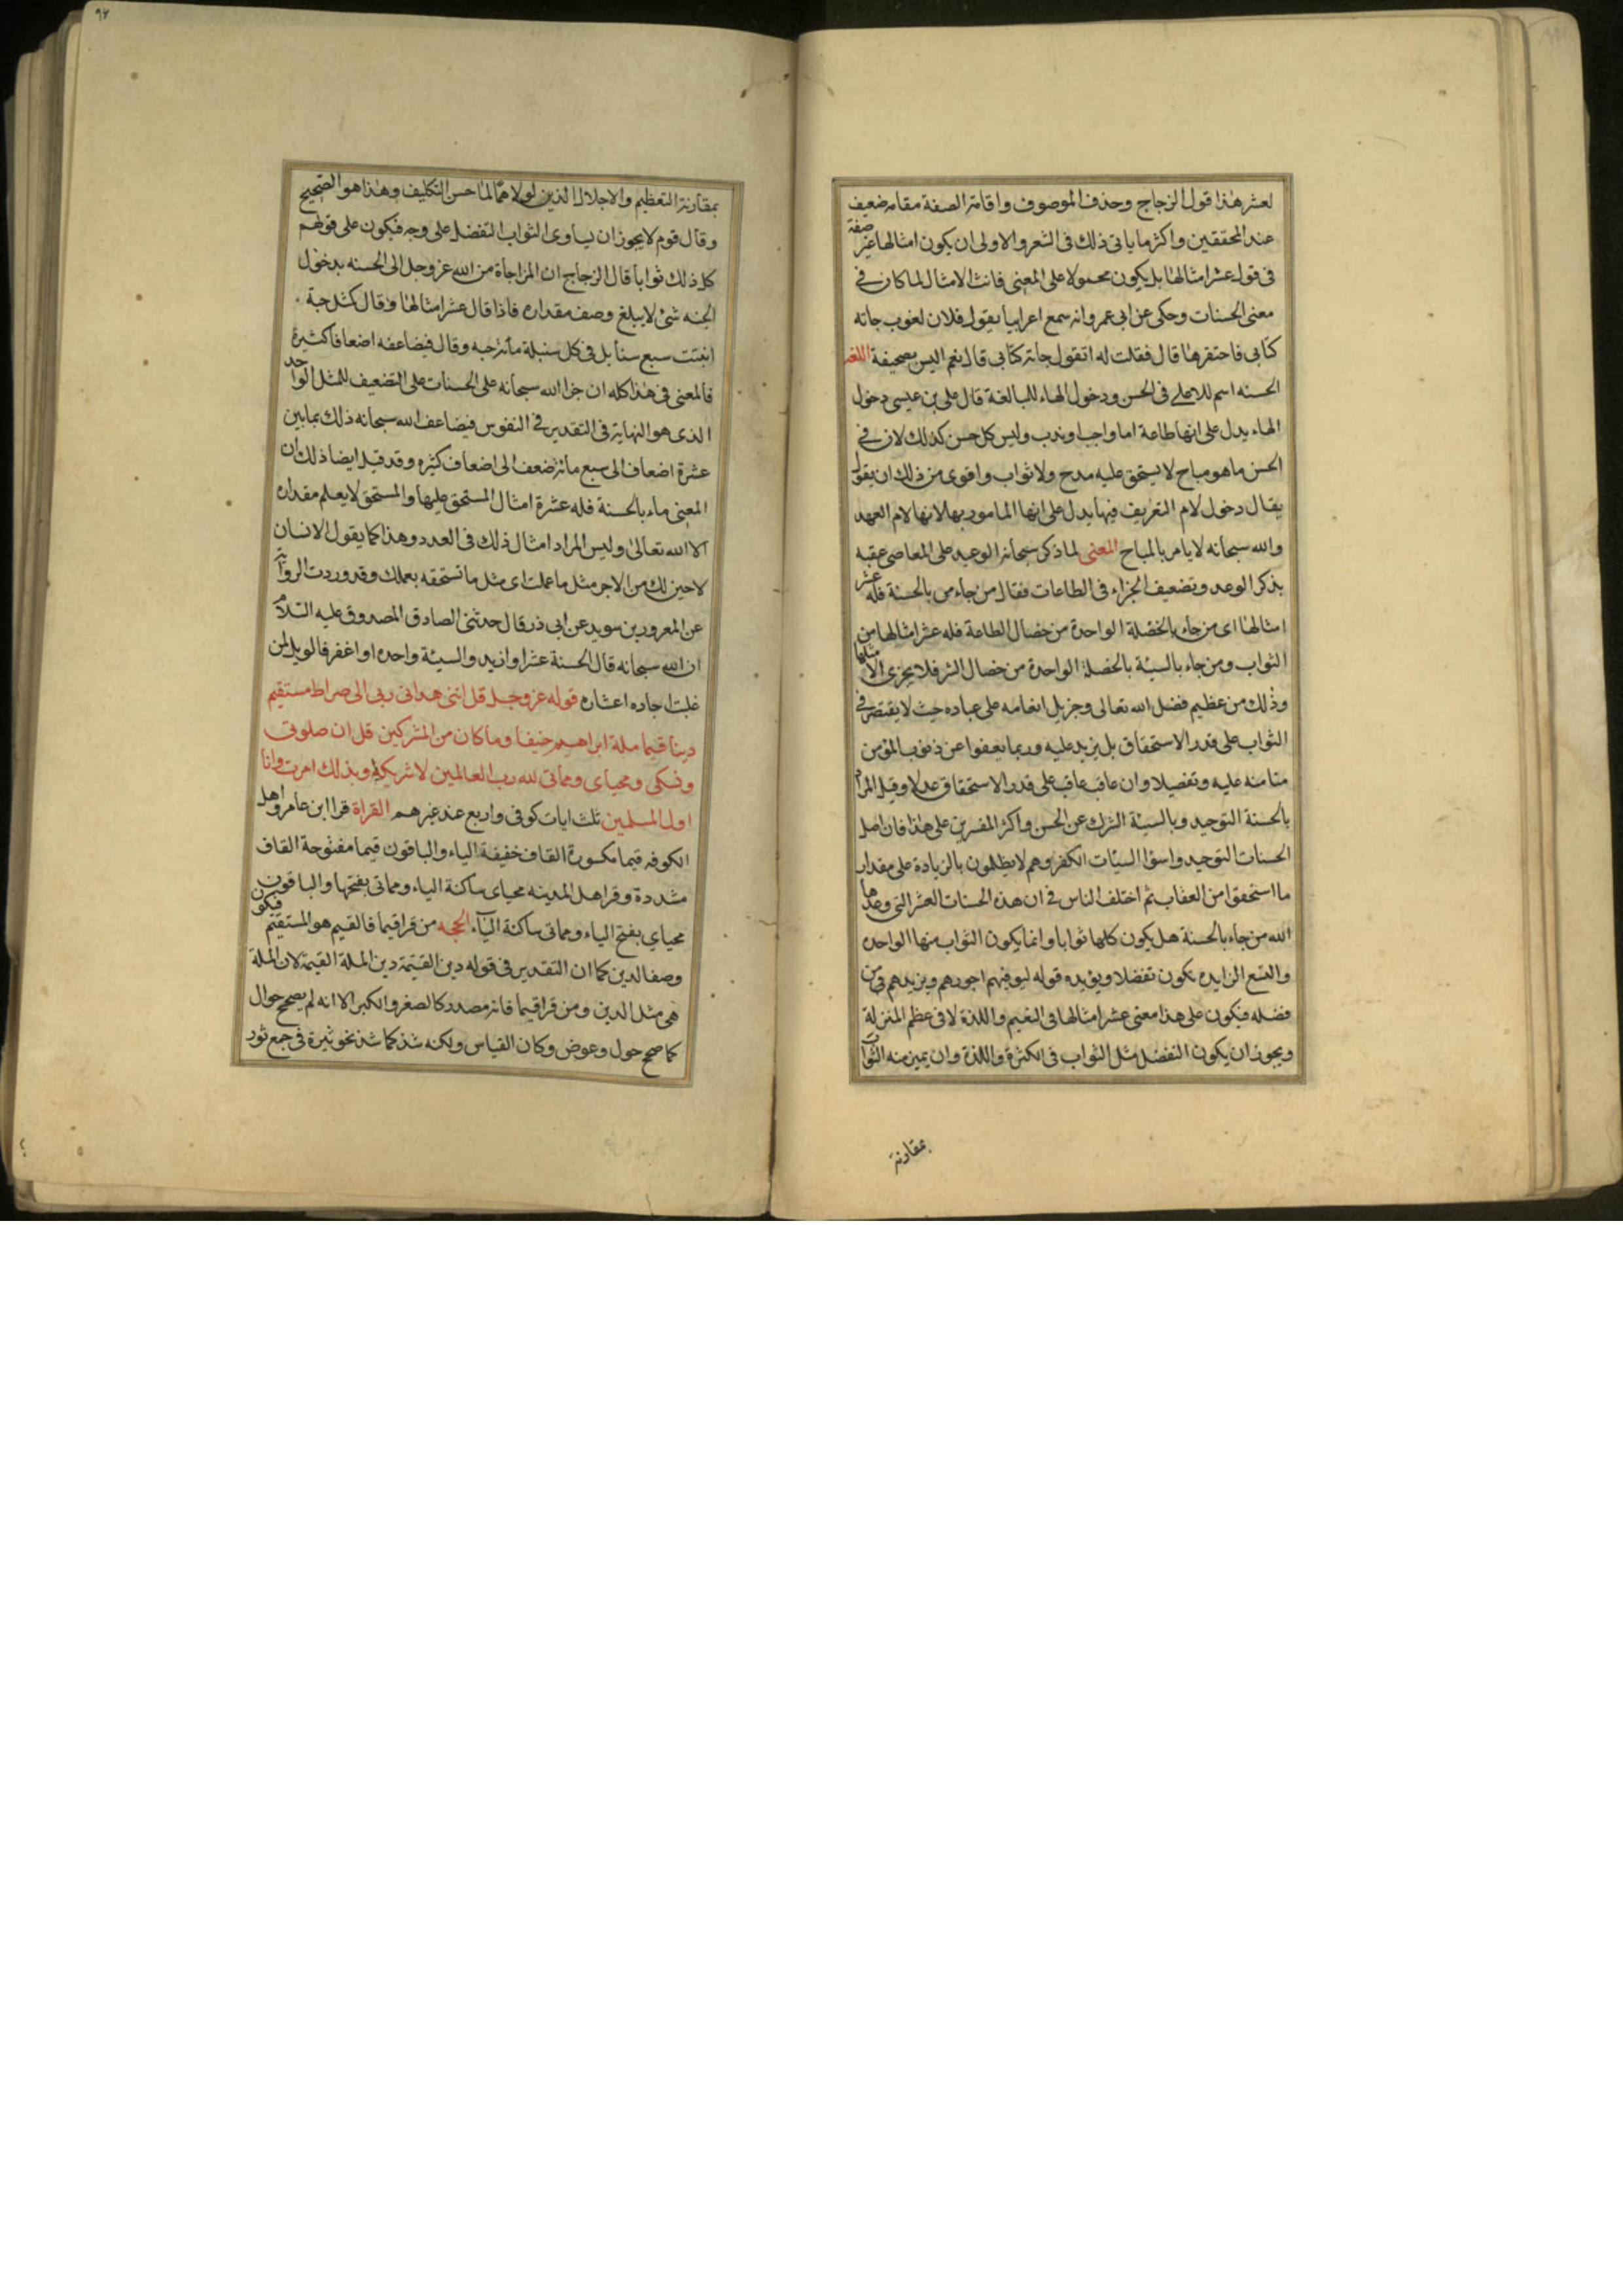 لعشر هذا قول الزجاج وحذف الموصوف واقامة الصفة مقامه ضعيف
عند المحققين واكثر ما ياتى ذلك فى الشعر والاولى ان يكون امثالها غير صفة
فى قوله عشر امثالها بل يكون محمولا على المعنى فانث الامثال لما كان فى
معنى الحسنات وحكى عن ابى عمرو انه سمع اعرابيا يقول فلان لغوب جاته
كتابى فاحتقرها قال فقلت له اتقول جاته كتابى قال نعم اليس بصحيفة اللغه
الحسنه اسم للاعلى فى الحسن ودخول الهاء للمبالغة قال على بن عيسى دخول
الهاء يدل على انها طاعة اما واجب او ندب وليس كل حسن كذلك لان فى
الحسن ما هو مباح لا يستحق عليه مدح ولا ثواب واقوى من ذلك ان يقول
يقال دخول لام التعريف فيها يدل على انها المامور بها لانها لام العهد
والله سبحانه لا يامر بالمباح المعنى لما ذكر سبحانه الوعيد على المعاصى عقبه
بذكر الوعد وتضعيف الجزاء فى الطاعات فقال من جاء من بالحسنة فله عشر
امثالها اى من جاء بالخصلة الواحدة من خصال الطاعة فله عشر امثالها من
الثواب ومن جاء بالسيئة بالخصلة الواحدة من خصال الشر فلا يجزى الا مثلها
وذلك من عظيم فضل الله تعالى وجزيل انعامه على عباده حيث لا يقتصر فى
الثواب على قدر الاستحقاق بل يزيد عليه وربما يعفوا عن ذنوب المؤمن
منا منه عليه وتفضيلا وان عاقب عاقب على قدر الاستحقاق عدلا وقيل المراد
بالحسنة التوحيد وبالسيئة الشرك عن الحسن واكثر المفسرين على هذا فان اصل
الحسنات التوحيد واسوا السيئات الكفر وهم لا يظلمون بالزيادة على مقدار
ما استحقوا من العقاب ثم اختلف الناس فى ان هذه الحسنات العشر التى وعدها
الله من جاء بالحسنة هل يكون كلها ثوابا وانما يكون الثواب منها الواحده
والتسع الزايده يكون تفضلا ويؤيده قوله ليوفيهم اجورهم ويزيدهم من
فضله فيكون على هذا معنى عشر امثالها فى النعيم واللذة لا فى عظم المنزلة
ويجوز ان يكون التفضل مثل الثواب فى الكثرة واللذة وان يميز منه الثواب
بمقارنة
٩٢
بمقارنة التعظيم والاجلال الذين لولاهما لما حسن التكليف وهذا هو الصحيح
وقال قوم لا يجوز ان يساوى الثواب التفضل على وجه فيكون على قولهم
كل ذلك ثوابا قال الزجاج ان المزاجاة من الله عز وجل الى الحسنه بدخول
الجنه شئ لا يبلغ وصف مقداره فاذا قال عشر امثالها وقال كمثل حبة
انبتت سبع سنابل فى كل سنبلة مائة حبه وقال فيضاعفه اضعافا كثيرة
فالمعنى فى هذا كله ان جزا الله سبحانه على الحسنات على التضعيف للمثل الواحد
الذى هو النهاية فى التقدير فى النفوس فيضاعف الله سبحانه ذلك بما بين
عشرة اضعاف الى سبع مائة ضعف الى اضعاف كثيره وقد قيل ايضا ذلك ان
المعنى ماء بالحسنة فله عشرة امثال المستحق عليها والمستحق لا يعلم مقداره
الا الله تعالى وليس المراد امثال ذلك فى العدد وهذا كما يقول الانسان
لاحين لك من الاجر مثل ما عملت اى مثل ما تستحقه بعملك وقد وردت الرواية
عن المعرور بن سويد عن ابى ذر قال حدثنى الصادق المصدوق عليه السلام
ان الله سبحانه قال الحسنة عشر او ازيد والسيئة واحده او اغفر فالويل لمن
غلبت احاده اعشاره قوله عز وجل قل اننى هدانى ربى الى صراط مستقيم
دينا قيما ملة ابراهيم حنيفا وما كان من المشركين قل ان صلوتى
ونسكى ومحياى ومماتى لله رب العالمين لا شريك له وبذلك امرت وانا
اول المسلمين ثلث ايات كوفى واربع عند غيرهم القراة قرا ابن عامر واهل
الكوفه قيما مكسورة القاف خفيفة الياء والباقون قيما مفتوحة القاف
مشددة وقرا اهل المدينه محياى ساكنة الياء ومماتى بفتحها والباقون
محياي بفتح الياء ومماتى ساكنة الياء الحجه من قرا قيما فالقيم هو المستقيم فيكون
وصفا للدين كما ان التقدير فى قوله دين القيمة دين الملة القيمة لان الملة
هى مثل الدين ومن قرا قيما فانه مصدر كالصغر والكبر الا انه لم يصحح حوال
كما صحح حول وعوض وكان القياس ولكنه شذ كما شذ نحو ثيرة فى جمع ثور